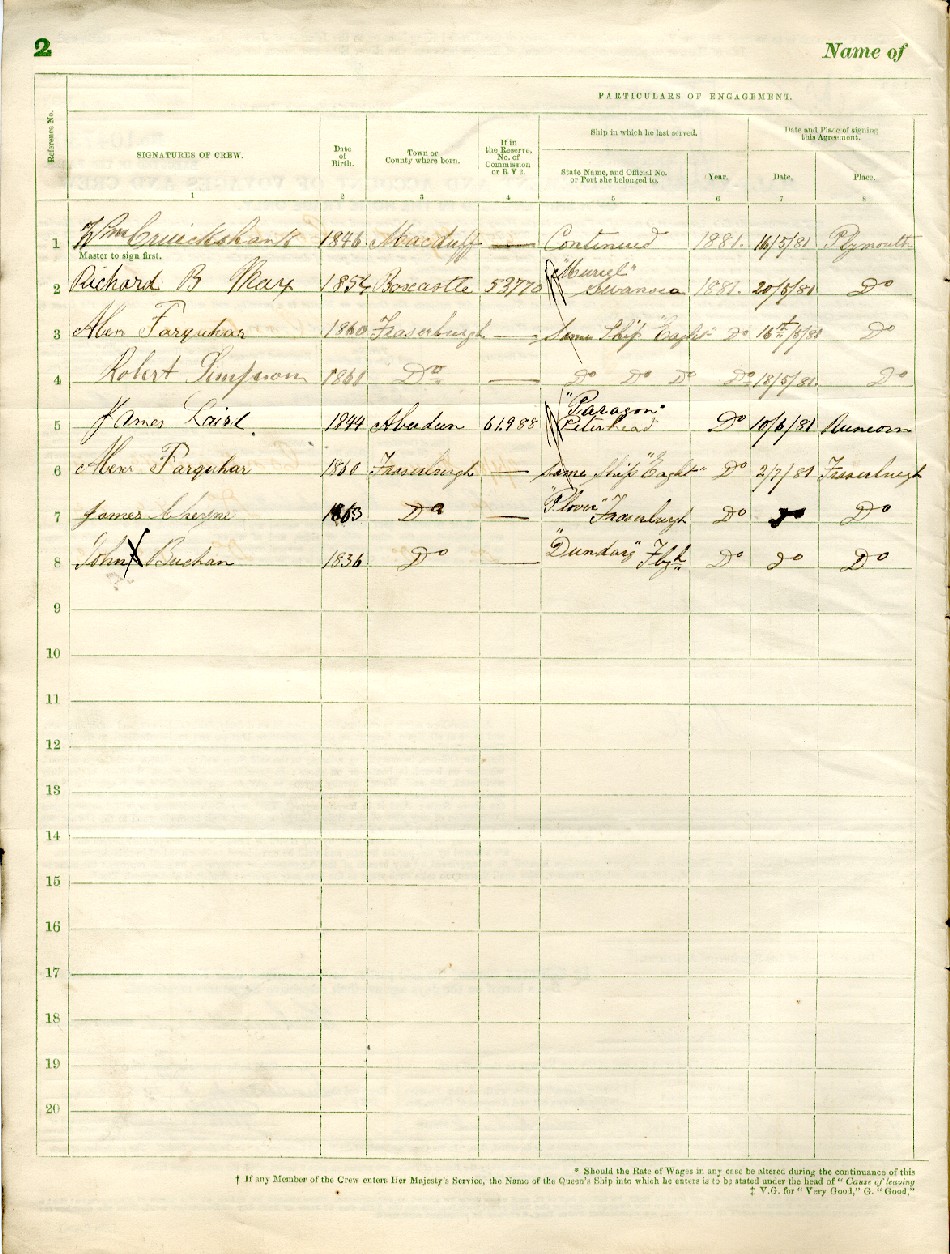 2
Name of
PARTICULARS OF ENGAGEMENT.
Reference No.
SIGNATURES OF CREW.
Date of Birth.
Town or County where born.
If in the Reserve, No. of Commission or R.V 2.
Ship in which he last served.
Date and Place of signing this Agreement.
State Name, and Official No. or Port she belonged to.
Year.
Date.
Place.
1 2 3 4 5 6 7 8
1 Wm Cruickshank 1846 Macduff — Continued 1881. 16/5/81 Plymouth
Master to sign first.
2 Richard B May 1854 Boscastle 53770 "Muriel" Swansea 1881. 20/5/81 Do
3 Alexr Farquhar 1860 Fraserburgh — Same Ship Do 16th/5/81 Do
4 Robert Simpson 1861 Do — Do Do Do Do 18/5/81. Do
5 James Laird. 1844 Aberdeen 61988 "Paragon" Peterhead Do 10/6/81 Runcorn
6 Alexr Farquhar 1860 Fraserburgh — Same Ship Do 2/7/81 Fraserburgh
7 James Cheyne 1863 Do — "Plover" Fraserburgh Do Do
8 John X Buchan 1836 Do — Do Do Do
9
10
11
12
13
14
15
16
17
18
19
20
* Should the Rate of Wages in any case be altered during the continuance of this
† If any Member of the Crew enters Her Majesty's Service, the Name of the Queen's Ship into which he enters is to be stated under the head of "Cause of leaving
‡ V.G. for "Very Good," G. "Good,"